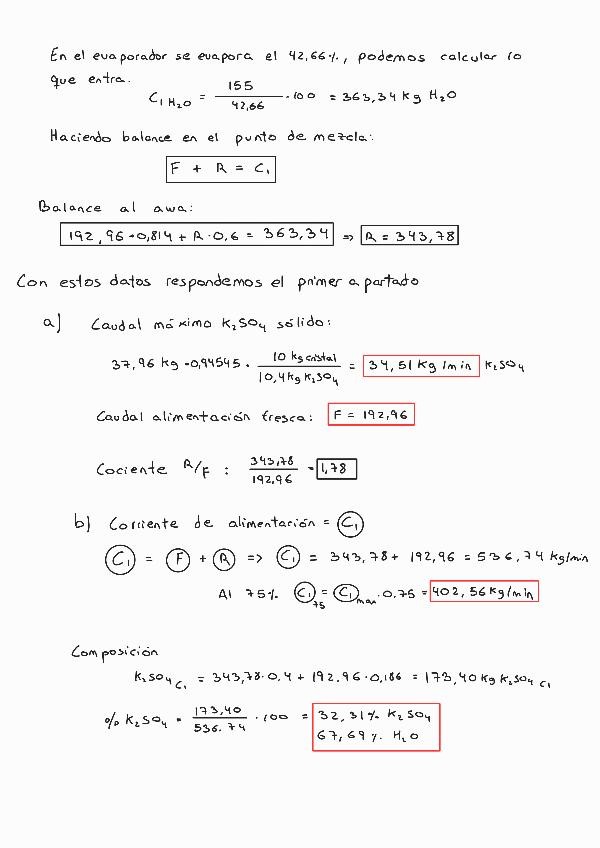 En el evaporador se evapora el 42,66%, podemos calcular lo
que entra.
C₁ H₂O = 155 / 42,66 · 100 = 363,34 Kg H₂O
Haciendo balance en el punto de mezcla:
F + R = C₁
Balance al awa:
192,96 · 0,814 + R · 0,6 = 363,34 => R = 343,78
Con estos datos respondemos el primer apartado
a) Caudal máximo K₂SO₄ sólido:
37,96 kg · 0,94545 · 10 kg cristal / 10,4 kg K₂SO₄ = 34,51 Kg/min K₂SO₄
Caudal alimentación fresca: F = 192,96
Cociente R/F : 343,78 / 192,96 = 1,78
b) Corriente de alimentación = C₁
C₁ = F + R => C₁ = 343,78 + 192,96 = 536,74 Kg/min
Al 75% C₁ 75 = C₁ max · 0.75 = 402,56 Kg/min
Composición
K₂SO₄ C₁ = 343,78 · 0.4 + 192.96 · 0,186 = 173,40 Kg K₂SO₄ C₁
% K₂SO₄ = 173,40 / 536.74 · 100 = 32,31% K₂SO₄
67,69 % H₂O